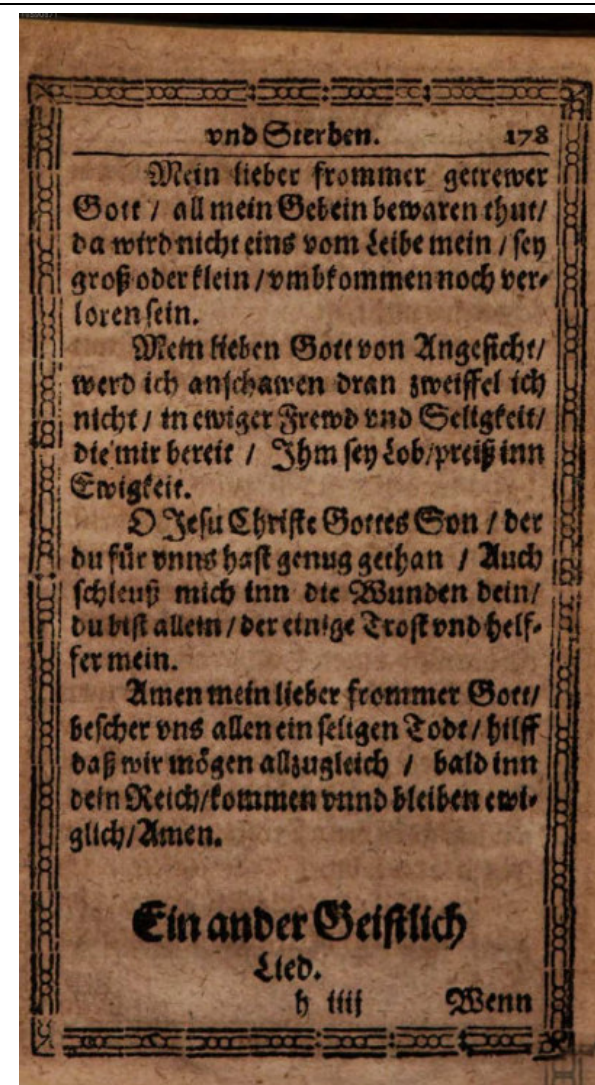 vnd Sterben. 178
Mein lieber frommer getrewer
Gott / all mein Gebein bewaren thut/
da wird nicht eins vom Leibe mein / sey
groß oder klein / vmbkommen noch ver⸗
loren sein.
Mein lieben Gott von Angesicht/
werd ich anschawen dran zweiffel ich
nicht / in ewiger Frewd vnd Seligkeit/
die mir bereit / Ihm sey Lob/preiß inn
Ewigkeit.
O Jesu Christe Gottes Son / der
du für vnns hast genug gethan / Auch
schleuß mich inn die Wunden dein/
du bist allein / der einige Trost vnd helf⸗
fer mein.
Amen mein lieber frommer Gott/
bescher vns allen ein seligen Todt / hilff
daß wir mögen allzugleich / bald inn
dein Reich/kommen vnnd bleiben ewi⸗
glich/Amen.
Ein ander Geistlich
Lied.
h iiij Wenn